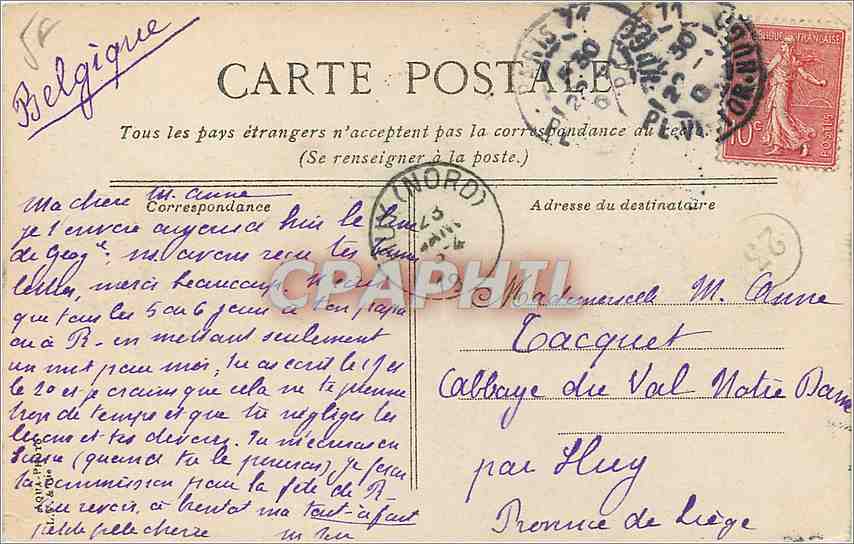 Belgique
CARTE POSTALE
Tous les pays étrangers n'acceptent pas la correspondance au recto
(Se renseigner à la poste.)
Correspondance
Adresse du destinataire
Ma chère M. Anne
je t'envoie aujourd'hui le
de Geog ns avons reçu tes
lettres, merci beaucoup. N'écris
que tous les 5 ou 6 jours à ton papa
ou à R- en mettant seulement
un mot pour moi, tu as écrit le 19 et
le 20 et je crains que cela ne te prenne
trop de temps et que tu négliges les
leçons et tes devoirs. Tu m'écriras en
(quand tu le pourras) je ferai
la commission pour la fête de R-
au revoir, à bientôt ma tout à fait
petite fille chérie
AQUA-PHOTO
Mademoiselle M. Anne
Tacquet
Abbaye du Val Notre Dame
par Huy
Province de Liège
HUY (NORD)
RÉPUBLIQUE FRANÇAISE
10c
POSTES
PARIS
23
CPAPHIL